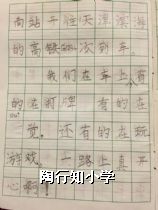 南站开往天津滨海
的高铁G582次列车。
我们在车上有
的在打牌 有的在
觉。还有的在玩
游戏。一路上真开
心啊！
陶行知小学